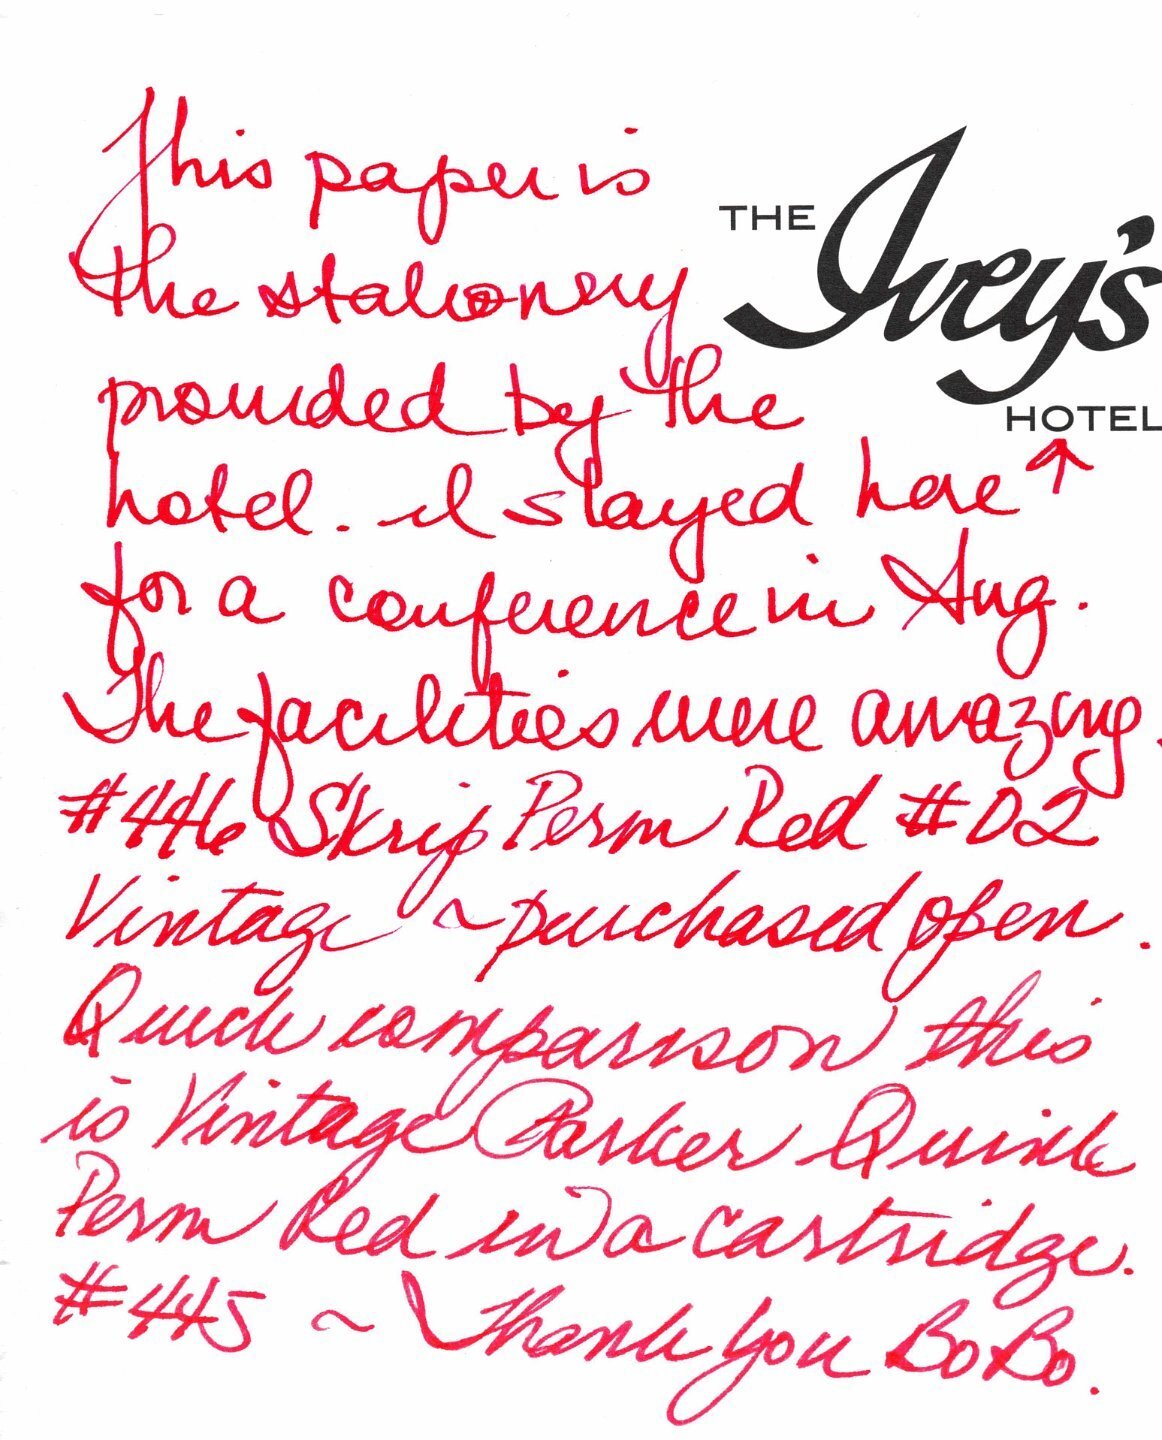 This paper is
THE Ivey's HOTEL
the stationery
provided by the
hotel. I stayed here ↑
for a conference in Aug.
The facilities were amazing.
#446 Skrip Perm Red #02
Vintage ~ purchased open.
Quick comparison this
is Vintage Parker Quink
Perm Red in a cartridge.
#445 ~ Thank You BoBo.